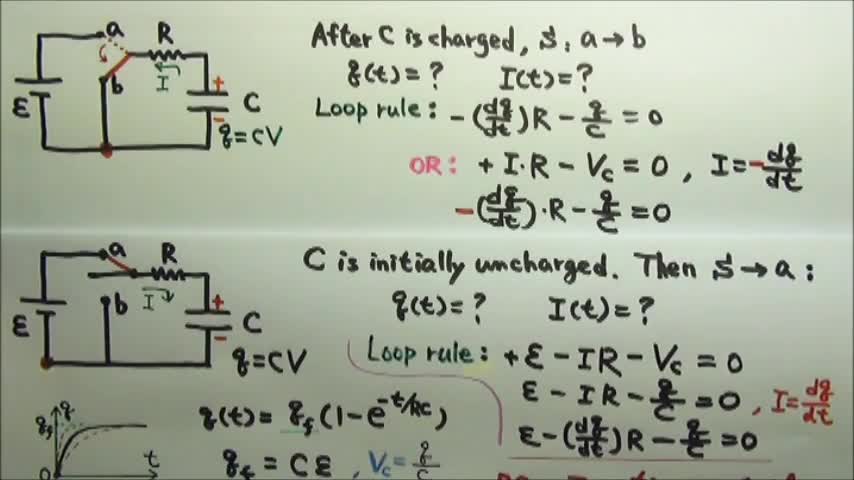 a R
After C is charged, S: a → b
b I
ε
+
- C
q = CV
q(t) = ? I(t) = ?
Loop rule: -(dq/dt)R - q/C = 0
OR: + I·R - Vc = 0, I = -dq/dt
-(dq/dt)·R - q/C = 0
a R
C is initially uncharged. Then S → a:
b I
ε
+
- C
q = CV
q(t) = ? I(t) = ?
Loop rule: +ε - IR - Vc = 0
ε - IR - q/C = 0, I = dq/dt
ε - (dq/dt)R - q/C = 0
qf q
t
0
q(t) = qf (1 - e^-t/RC)
qf = Cε, Vc = q/C